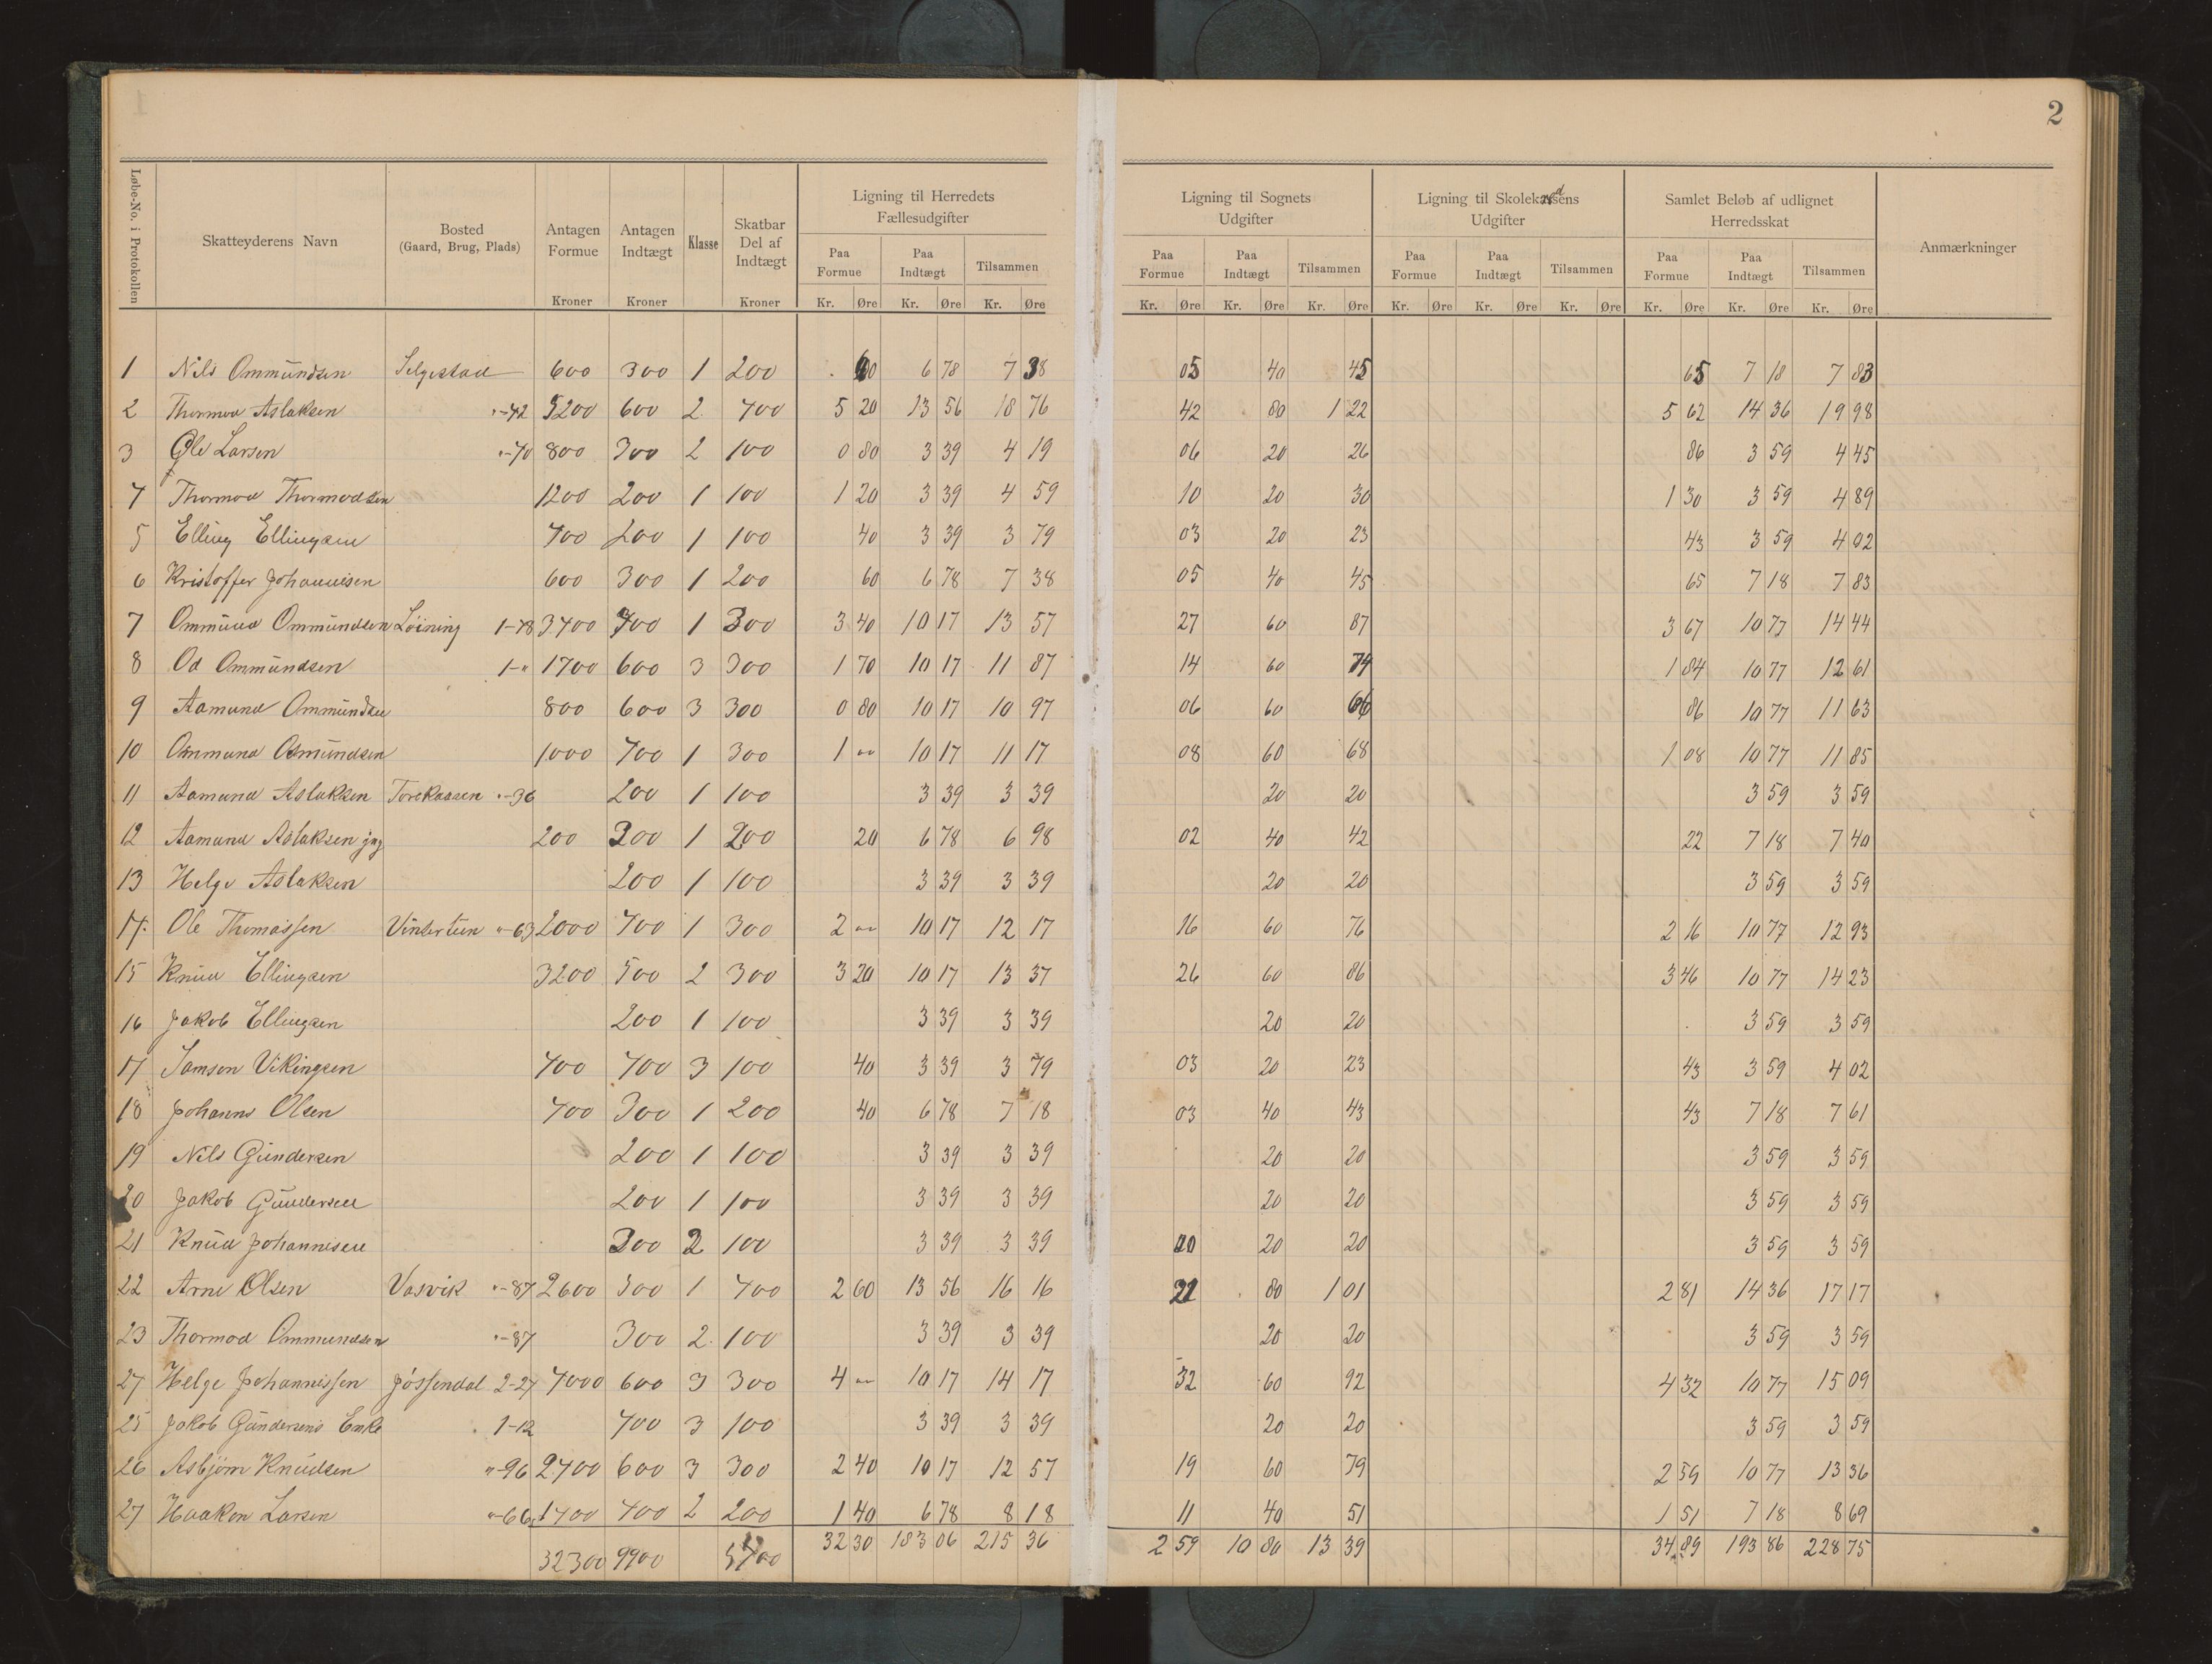 1 2
Løbe-No. i Protokollen | Skatteyderens Navn | Bosted (Gaard, Brug, Plads) | Antagen Formue Kroner | Antagen Indtægt Kroner | Klasse | Skatbar Del af Indtægt Kroner | Ligning til Herredets Fællesudgifter | Ligning til Sognets Udgifter | Ligning til Skolekredsens Udgifter | Samlet Beløb af udlignet Herredsskat | Anmærkninger
Paa Formue | Paa Indtægt | Tilsammen | Paa Formue | Paa Indtægt | Tilsammen | Paa Formue | Paa Indtægt | Tilsammen | Paa Formue | Paa Indtægt | Tilsammen
Kr. Øre Kr. Øre Kr. Øre Kr. Øre Kr. Øre Kr. Øre Kr. Øre Kr. Øre Kr. Øre Kr. Øre Kr. Øre Kr. Øre
1 Nils Ommundsen Selgestad 600 300 1 200 60 6 78 7 38 05 40 45 65 7 18 7 83
2 Thormod Aslaksen "-42 5200 600 2 400 5 20 13 56 18 76 42 80 1 22 5 62 14 36 19 98
3 Ole Larsen "-40 800 300 2 100 0 80 3 39 4 19 06 20 26 86 3 59 4 45
4 Thormod Thormodsen 1200 200 1 100 1 20 3 39 4 59 10 20 30 1 30 3 59 4 89
5 Elling Ellingsen 400 200 1 100 40 3 39 3 79 03 20 23 43 3 59 4 02
6 Kristoffer Johannisen 600 300 1 200 60 6 78 7 38 05 40 45 65 7 18 7 83
7 Ommund Ommundsen Löining 1-48 3400 400 1 300 3 40 10 17 13 57 27 60 87 3 67 10 77 14 44
8 Od Ommundsen 1-" 1700 600 3 300 1 70 10 17 11 87 14 60 74 1 84 10 77 12 61
9 Aamund Ommundsen 800 600 3 300 0 80 10 17 10 97 06 60 66 86 10 77 11 63
10 Ommund Osmundsen 1000 400 1 300 1 "" 10 17 11 17 08 60 68 1 08 10 77 11 85
11 Aamund Aslaksen Torekaasen "-36 200 1 100 3 39 3 39 20 20 3 59 3 59
12 Aamund Aslaksen jng 200 300 1 200 20 6 78 6 98 02 40 42 22 7 18 7 40
13 Helge Aslaksen 200 1 100 3 39 3 39 20 20 3 59 3 59
14 Ole Thomassen Vintertun "-63 2000 400 1 300 2 "" 10 17 12 17 16 60 76 2 16 10 77 12 93
15 Knud Ellingsen 3200 500 2 300 3 20 10 17 13 37 26 60 86 3 46 10 77 14 23
16 Jakob Ellingsen 200 1 100 3 39 3 39 20 20 3 59 3 59
17 Samson Vikingsen 400 400 3 100 40 3 39 3 79 03 20 23 43 3 59 4 02
18 Johanns Olsen 400 300 1 200 40 6 78 7 18 03 40 43 43 7 18 7 61
19 Nils Gundersen 200 1 100 3 39 3 39 20 20 3 59 3 59
20 Jakob Gundersen 200 1 100 3 39 3 39 20 20 3 59 3 59
21 Knud Johannisen 300 2 100 3 39 3 39 20 20 3 59 3 59
22 Arne Olsen Vasvik "-87 2600 500 1 400 2 60 13 56 16 16 21 80 1 01 2 81 14 36 17 17
23 Thormod Ommundsen "-87 300 2 100 3 39 3 39 20 20 3 59 3 59
24 Helge Johannissen Jössendal 2-24 4000 600 3 300 4 "" 10 17 14 17 32 60 92 4 32 10 77 15 09
25 Jakob Gundersens Enke 1-12 400 3 100 3 39 3 39 20 20 3 59 3 59
26 Asbjörn Knudsen "-96 2400 600 3 300 2 40 10 17 12 57 19 60 79 2 59 10 77 13 36
27 Haakon Larsen "-66 1400 400 2 200 1 40 6 78 8 18 11 40 51 1 51 7 18 8 69
32300 9900 5400 32 30 183 06 215 36 2 59 10 80 13 39 34 89 193 86 228 75